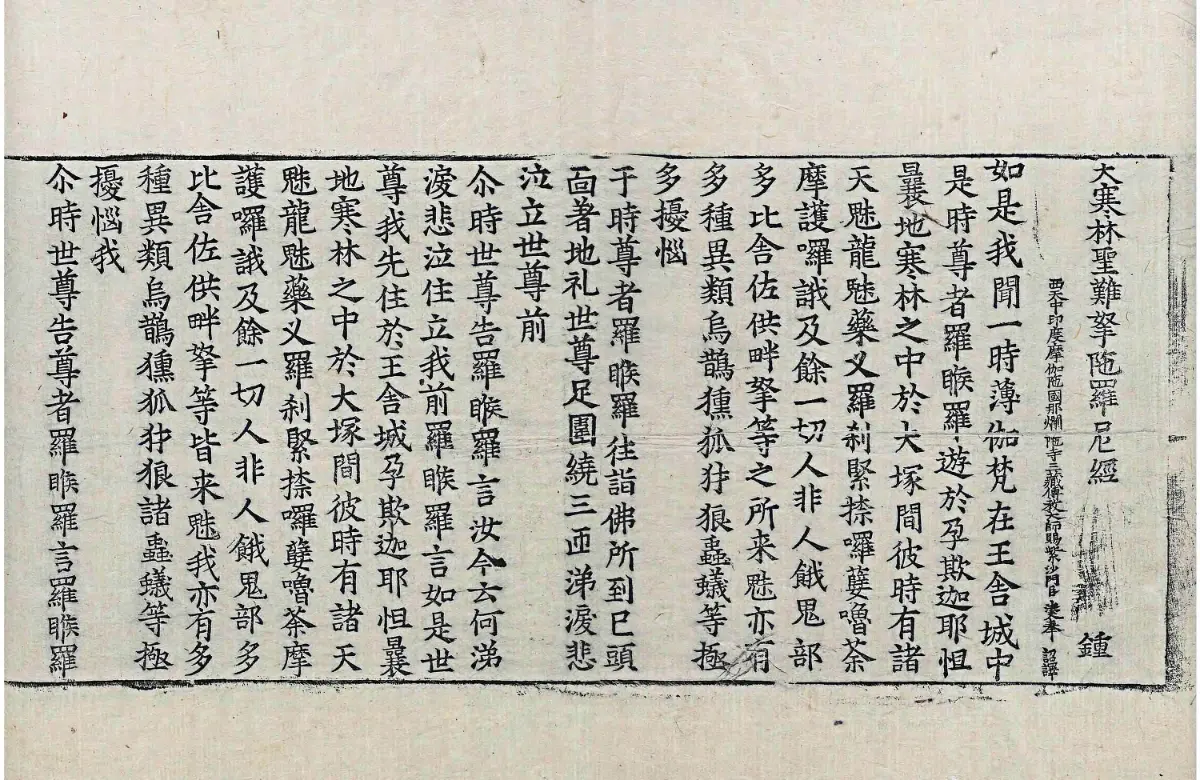 大寒林聖難拏陁羅尼經 鍾
西天中印度摩伽陁國那爛陁寺三藏傳教大師賜紫沙門臣法天奉 詔譯
如是我聞一時薄伽梵在王舍城中
是時尊者羅睺羅遊於孕欺迦耶怛
曩地寒林之中於大塚間彼時有諸
天魅龍魅藥叉羅刹緊捺囉蘖嚕荼
摩護囉誐及餘一切人非人餓鬼部
多比舍佐供畔拏等之所来魅亦有
多種異類烏鵲獯狐犲狼蟲蟻等極
多擾惱
于時尊者羅睺羅往詣佛所到已頭
面著地礼世尊足圍繞三匝涕淚悲
泣立世尊前
尒時世尊告羅睺羅言汝今云何涕
淚悲泣住立我前羅睺羅言如是世
尊我先住於王舍城孕欺迦耶怛曩
地寒林之中於大塚間彼時有諸天
魅龍魅藥叉羅刹緊捺囉蘖嚕荼摩
護囉誐及餘一切人非人餓鬼部多
比舍佐供畔拏等皆来魅我亦有多
種異類烏鵲獯狐犲狼諸蟲蟻等極
擾惱我
尒時世尊告尊者羅睺羅言羅睺羅